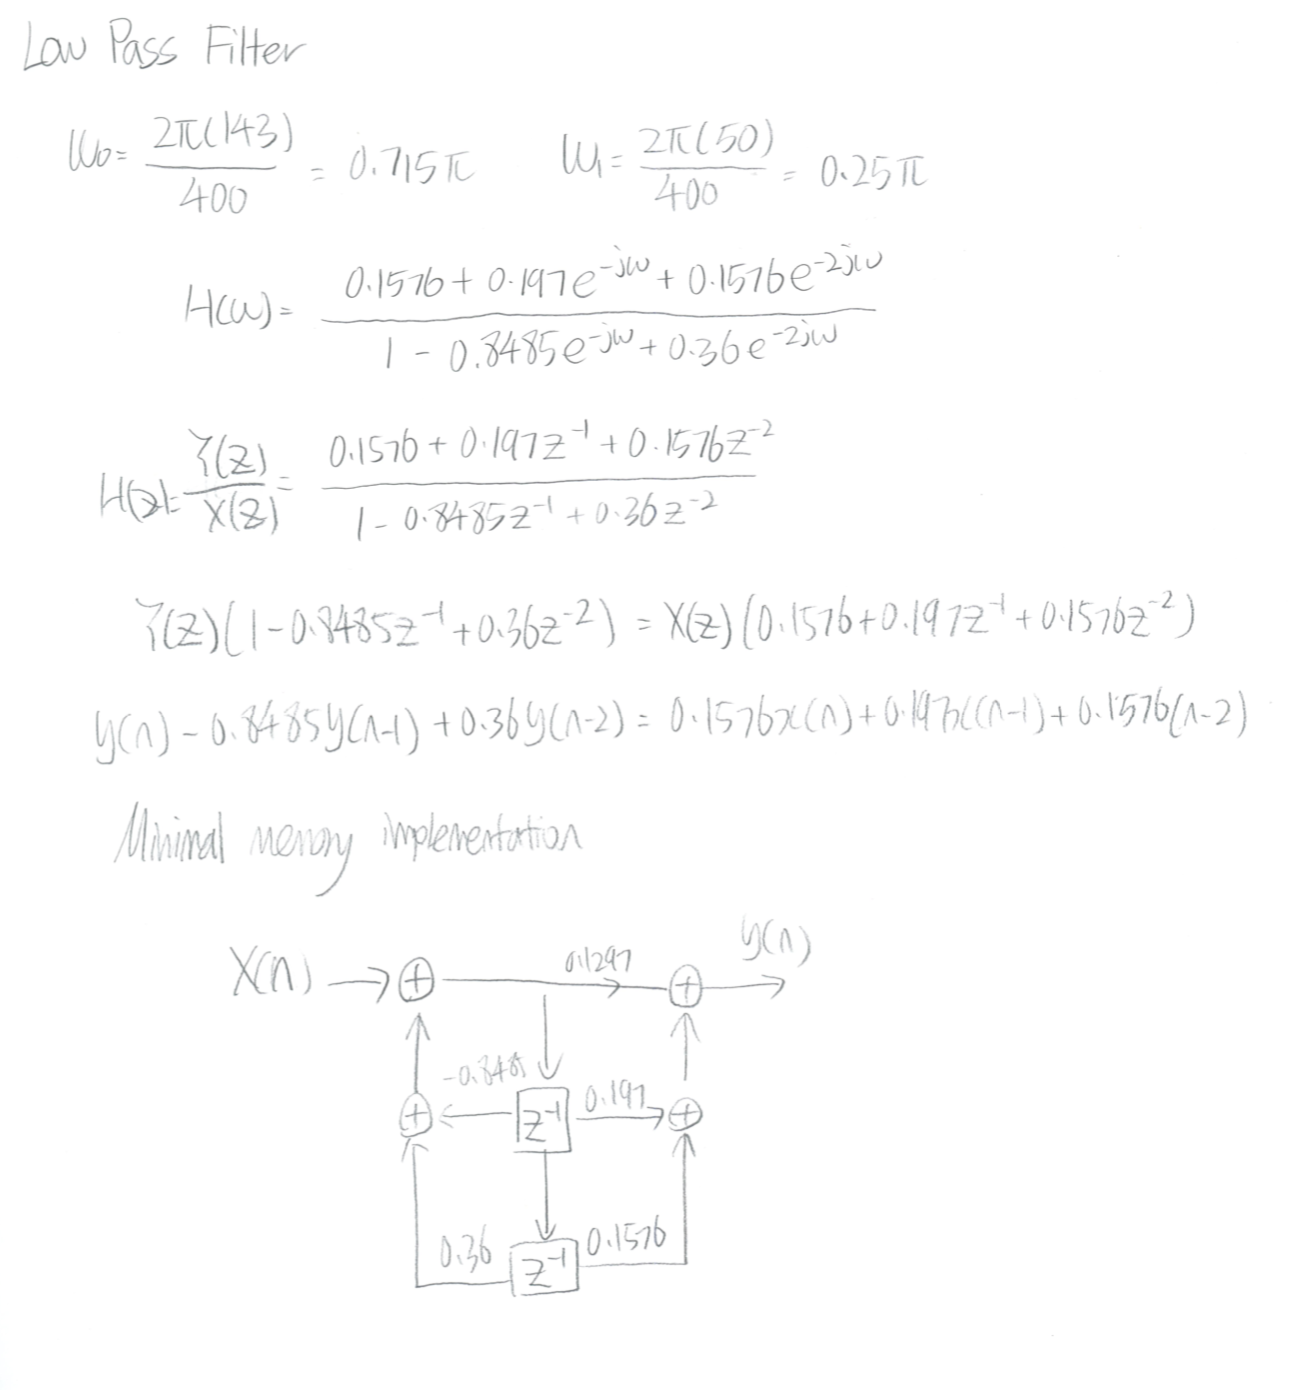 Low Pass Filter
W₀ = 2π(143)/400 = 0.715π W₁ = 2π(50)/400 = 0.25π
H(ω) = (0.1576 + 0.197e^-jω + 0.1576e^-2jω)/(1 - 0.8485e^-jω + 0.36e^-2jω)
H(z) = Y(z)/X(z) = (0.1576 + 0.197z^-1 + 0.1576z^-2)/(1 - 0.8485z^-1 + 0.36z^-2)
Y(z)(1-0.8485z^-1 + 0.36z^-2) = X(z)(0.1576 + 0.197z^-1 + 0.1576z^-2)
y(n) - 0.8485y(n-1) + 0.36y(n-2) = 0.1576x(n) + 0.197x((n-1) + 0.1576(n-2)
Minimal memory implementation
X(n) → ⊕ 0.1297 ⊕ → y(n)
-0.8485
⊕ ← z^-1 0.197 → ⊕
0.36 z^-1 0.1576